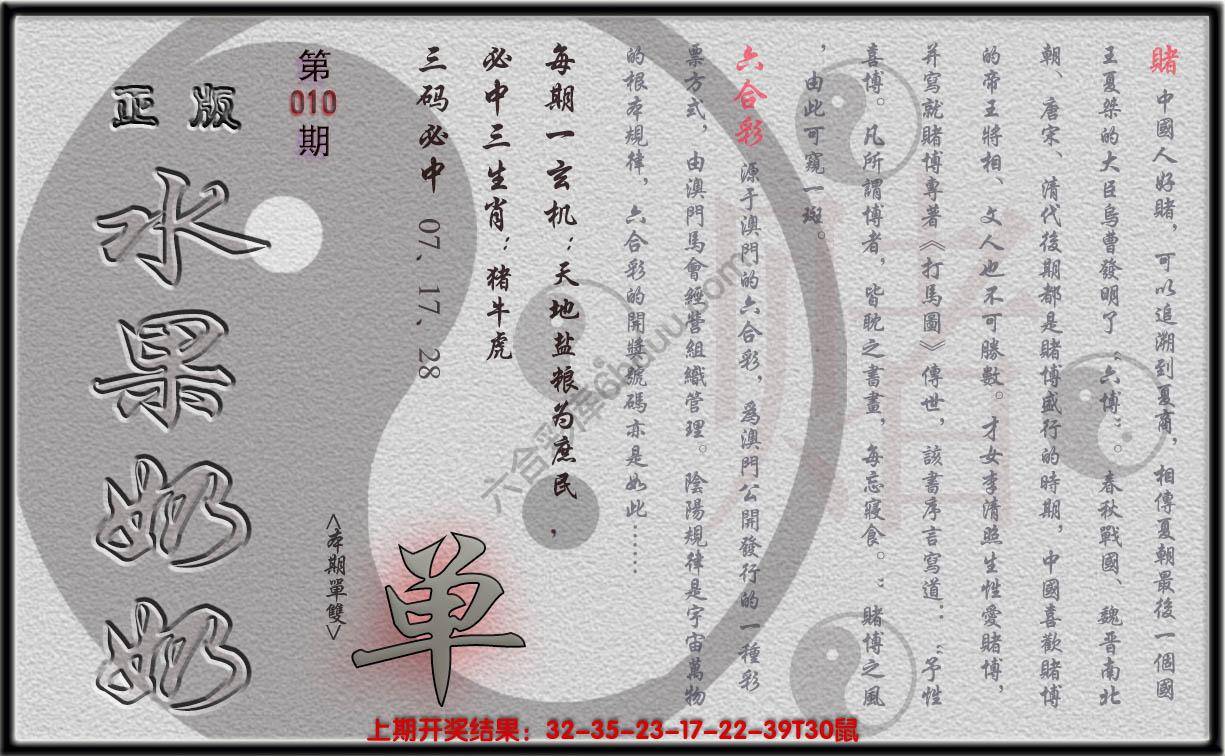 賭 中國人好賭，可以追溯到夏商，相傳夏朝最後一個國
王夏桀的大臣烏曹發明了“六博”。春秋戰國、魏晋南北
朝、唐宋、清代後期都是賭博盛行的時期，中國喜歡賭博
的帝王將相、文人也不可勝數。才女李清照生性愛賭博，
并寫就賭博專著《打馬圖》傳世，該書序言寫道：“予性
喜博。凡所謂博者，皆耽之書畫，每忘寢食。”賭博之風
，由此可窺一斑。
六合彩 源于澳門的六合彩，爲澳門公開發行的一種彩
票方式，由澳門馬會經營組織管理。陰陽規律是宇宙萬物
的根本規律，六合彩的開獎號碼亦是如此……
每期一玄机：天地盐粮为庶民，
必中三生肖：猪牛虎
三码必中 07、17、28
第
010
期
正版
水果奶奶
<本期單雙>
单
賭
六合彩库6buuu.com
上期开奖结果：32-35-23-17-22-39T30鼠